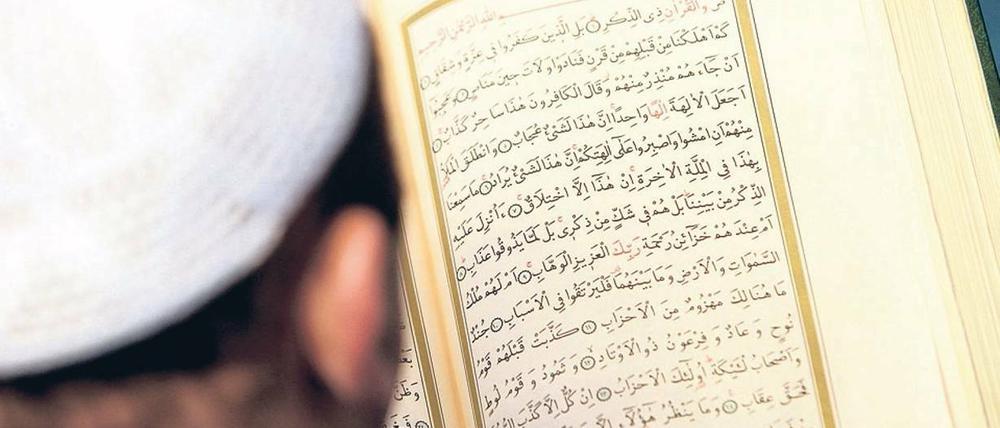 الله الرحمن الرحيم
ص وَالْقُرْآنِ ذِي الذِّكْرِ ١ بَلِ الَّذِينَ كَفَرُوا فِي عِزَّةٍ وَشِقَاقٍ ٢
كَمْ اَهْلَكْنَا مِنْ قَبْلِهِمْ مِنْ قَرْنٍ فَنَادَوْا وَلَاتَ حِينَ مَنَاصٍ ٣ وَعَجِبُوا
اَنْ جَاءَهُمْ مُنْذِرٌ مِنْهُمْ وَقَالَ الْكَافِرُونَ هٰذَا سَاحِرٌ كَذَّابٌ ٤
اَجَعَلَ الْاٰلِهَةَ اِلٰهًا وَاحِدًا اِنَّ هٰذَا لَشَيْءٌ عُجَابٌ ٥ وَانْطَلَقَ الْمَلَأُ
مِنْهُمْ اَنِ امْشُوا وَاصْبِرُوا عَلٰى اٰلِهَتِكُمْ اِنَّ هٰذَا لَشَيْءٌ يُرَادُ ٦ مَا سَمِعْنَا
بِهٰذَا فِي الْمِلَّةِ الْاٰخِرَةِ اِنْ هٰذَا اِلَّا اخْتِلَاقٌ ٧ ءَاُنْزِلَ عَلَيْهِ
الذِّكْرُ مِنْ بَيْنِنَا بَلْ هُمْ فِي شَكٍّ مِنْ ذِكْرِي بَلْ لَمَّا يَذُوقُوا عَذَابِ ٨
اَمْ عِنْدَهُمْ خَزَائِنُ رَحْمَةِ رَبِّكَ الْعَزِيزِ الْوَهَّابِ ٩ اَمْ لَهُمْ مُلْكُ
السَّمٰوَاتِ وَالْاَرْضِ وَمَا بَيْنَهُمَا فَلْيَرْتَقُوا فِي الْاَسْبَابِ ١٠ جُنْدٌ
مَا هُنَالِكَ مَهْزُومٌ مِنَ الْاَحْزَابِ ١١ كَذَّبَتْ قَبْلَهُمْ قَوْمُ
نُوحٍ وَعَادٌ وَفِرْعَوْنُ ذُو الْاَوْتَادِ ١٢ وَثَمُودُ وَقَوْمُ لُوطٍ
وَاَصْحَابُ لْئَيْكَةِ اُولٰئِكَ الْاَحْزَابُ ١٣ اِنْ كُلٌّ اِلَّا كَذَّبَ الرُّسُلَ
فَحَقَّ عِقَابِ ١٤ وَمَا يَنْظُرُ هٰؤُلَاءِ